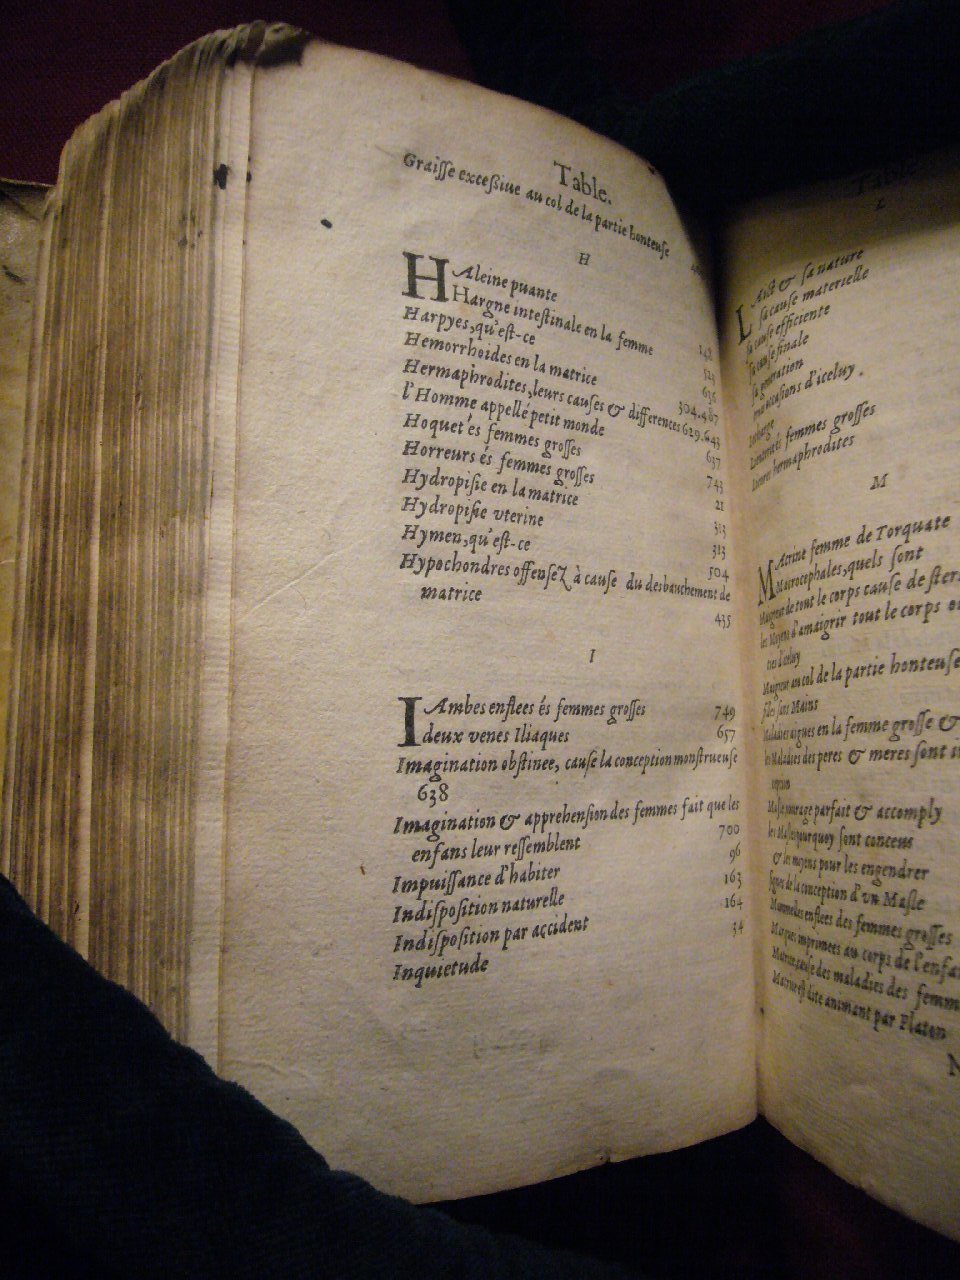 Table.
Graiſſe exceſſiue au col de la partie honteuſe
H
HAleine puante 142
Hargne inteſtinale en la femme 523
Harpyes, qu'eſt-ce 636
Hemorrhoides en la matrice 504.487
Hermaphrodites, leurs cauſes & differences 629.643
l'Homme appellé petit monde 637
Hoquet és femmes groſſes 743
Horreurs és femmes groſſes 21
Hydropiſie en la matrice 313
Hydropiſie vterine 313
Hymen, qu'eſt-ce 504
Hypochondres offenſeZ à cauſe du desbauchement de
matrice 435
I
IAmbes enflees és femmes groſſes 749
deux venes Iliaques 657
Imagination obſtinee, cauſe la conception monſtrueuſe
638
Imagination & apprehenſion des femmes fait que les
enfans leur reſſemblent 700
Impuiſſance d'habiter 96
Indiſpoſition naturelle 163
Indiſpoſition par accident 164
Inquietude 34
L
LAict & ſa nature
ſa cauſe materielle
ſa cauſe efficiente
ſa cauſe finale
ſa generation
occaſions d'iceluy.
és femmes groſſes
hermaphrodites
M
MAtrine femme de Torquate
Macrocephales, quels ſont
Maigreur de tout le corps cauſe de
les Moyens d'amaigrir tout le corps
d'iceluy
Maigreur au col de la partie honteuſe
filles ſans Mains
Maladies aigues en la femme groſſe &
les Maladies des peres & meres ſont
Maſle ouurage parfait & accomply
les Maſles pourquoy ſont conceus
& les moyens pour les engendrer
ſignes de la conception d'vn Maſle
Mammelles enflees des femmes groſſes
Marques imprimees au corps de l'enfa
Matrice, cauſe des maladies des femm
Matrice eſt dite animant par Platon